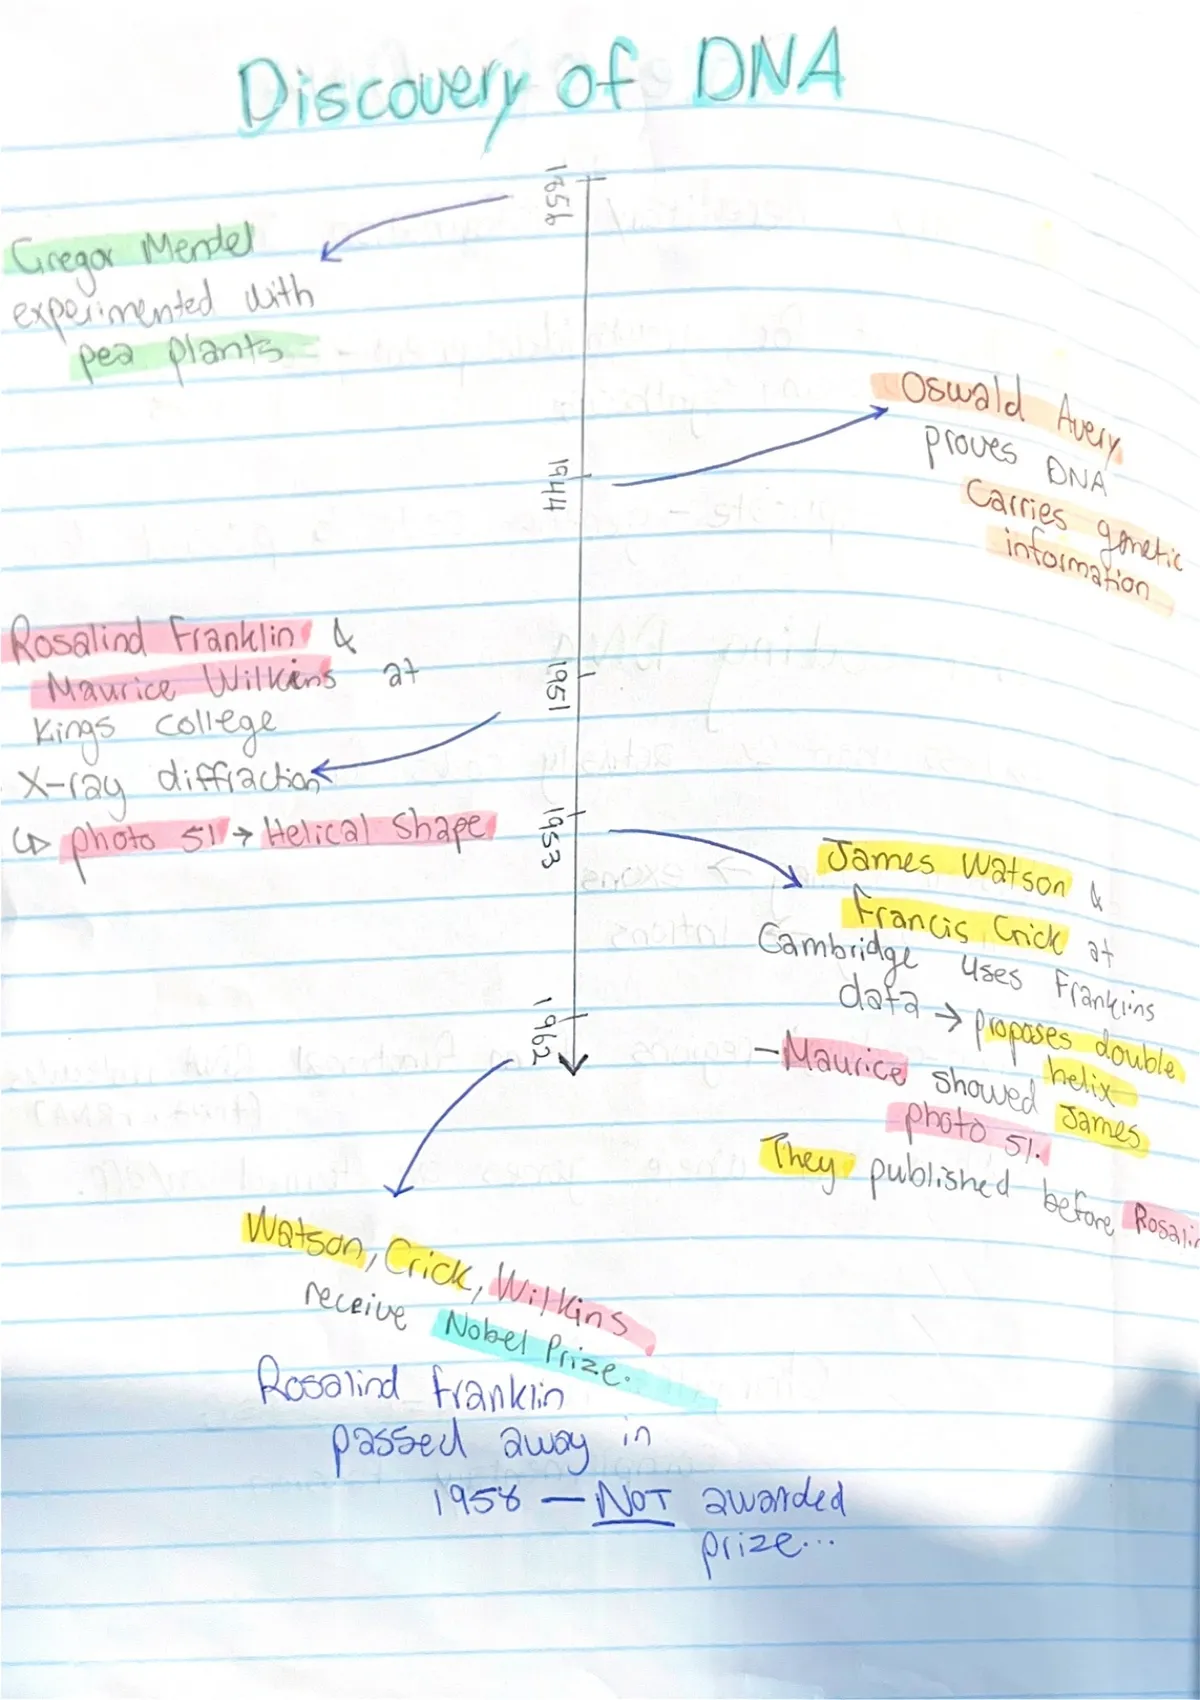 Discovery of DNA
1856
Gregor Mendel
experimented with
pea plants
1944
Oswald Avery
proves DNA
Carries genetic
information
1951
Rosalind Franklin &
Maurice Wilkins at
Kings college
X-ray diffraction
↳ photo 51 → Helical Shape
1953
James Watson &
Francis Crick at
Cambridge uses Franklins
data → proposes double
helix
- Maurice showed James
photo 51.
They published before Rosalin
1962
Watson, Crick, Wilkins
receive Nobel Prize.
Rosalind Franklin
passed away in
1958 — NOT awarded
prize...